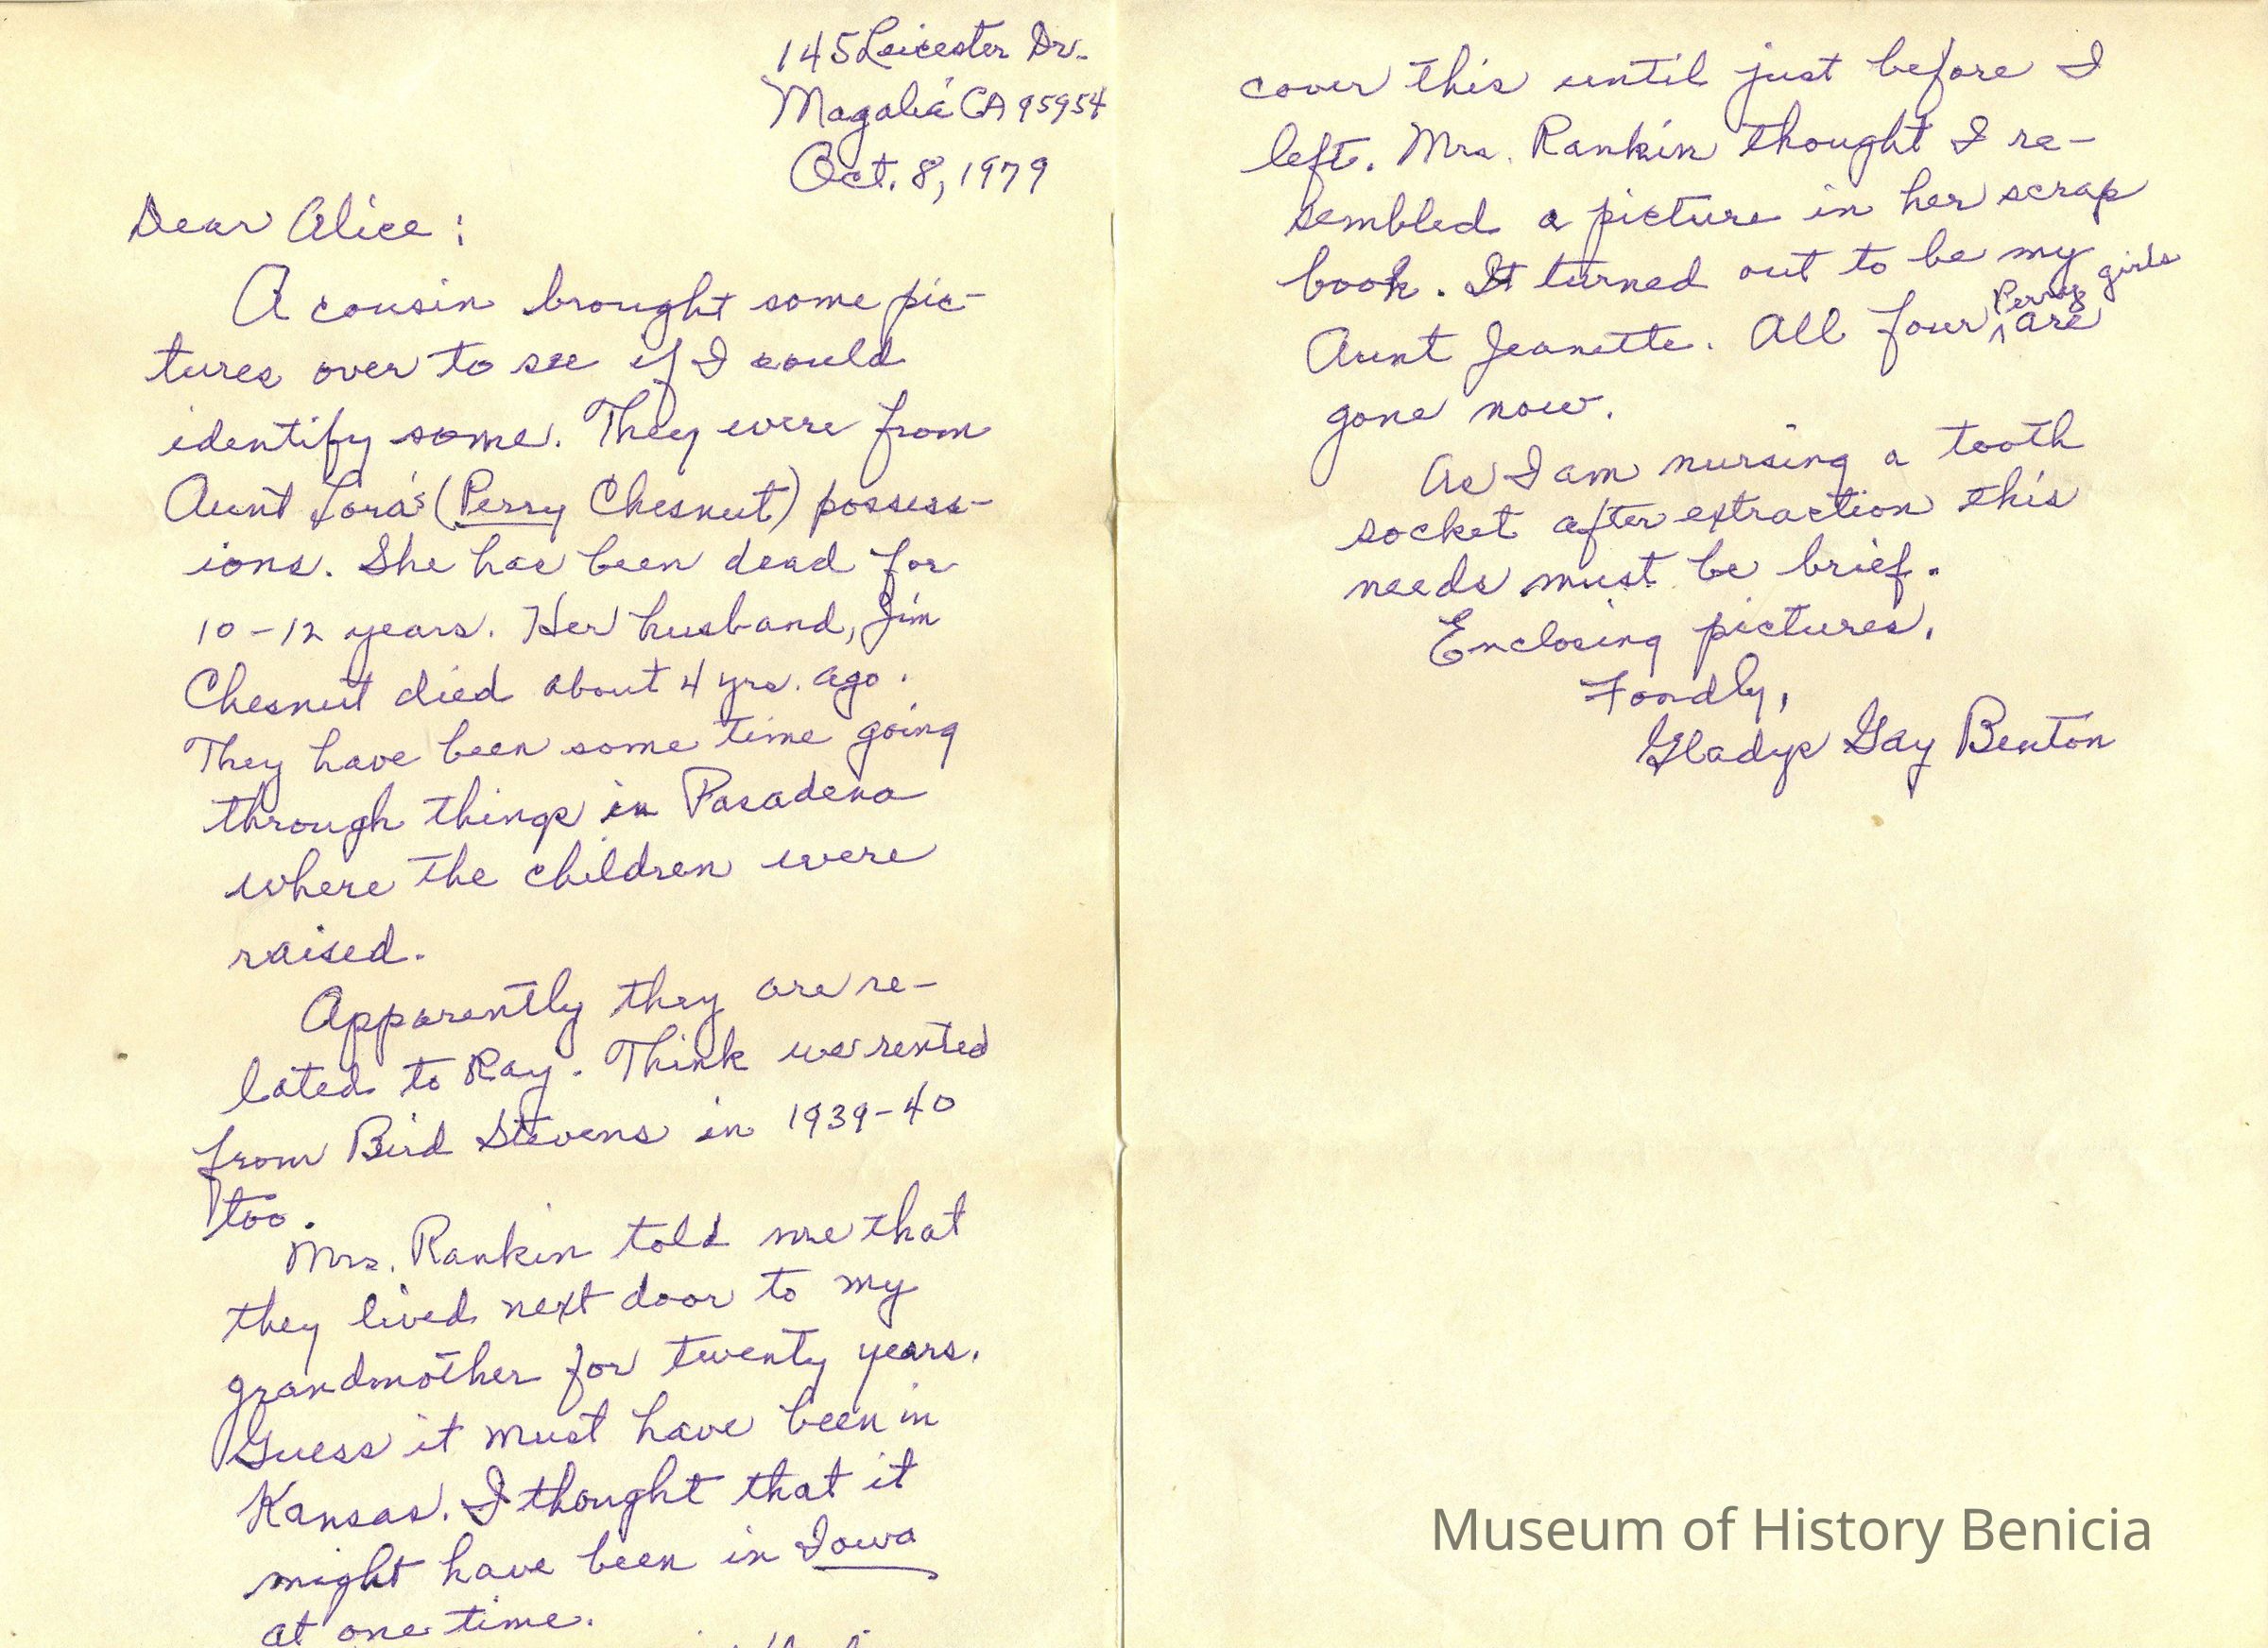 145 Leicester Dr.
Magalia CA 95954
Oct. 8, 1979
Dear Alice:
A cousin brought some pic-
tures over to see if I could
identify some. They were from
Aunt Lora's (Perry Chesnut) possess-
ions. She has been dead for
10-12 years. Her husband, Jim
Chesnut died about 4 yrs. ago.
They have been some time going
through things in Pasadena
where the children were
raised.
Apparently they are re-
lated to Ray. Think we rented
from Bird Stevens in 1939-40
too.
Mrs. Rankin told me that
they lived next door to my
grandmother for twenty years.
Guess it must have been in
Kansas. I thought that it
might have been in Iowa
at one time.
cover this until just before I
left. Mrs. Rankin thought I re-
sembled a picture in her scrap
book. It turned out to be my
Aunt Jeanette. All four Perry girls are
gone now.
As I am nursing a tooth
socket after extraction this
needs must be brief.
Enclosing pictures.
Fondly,
Gladys Gay Benton
Museum of History Benicia